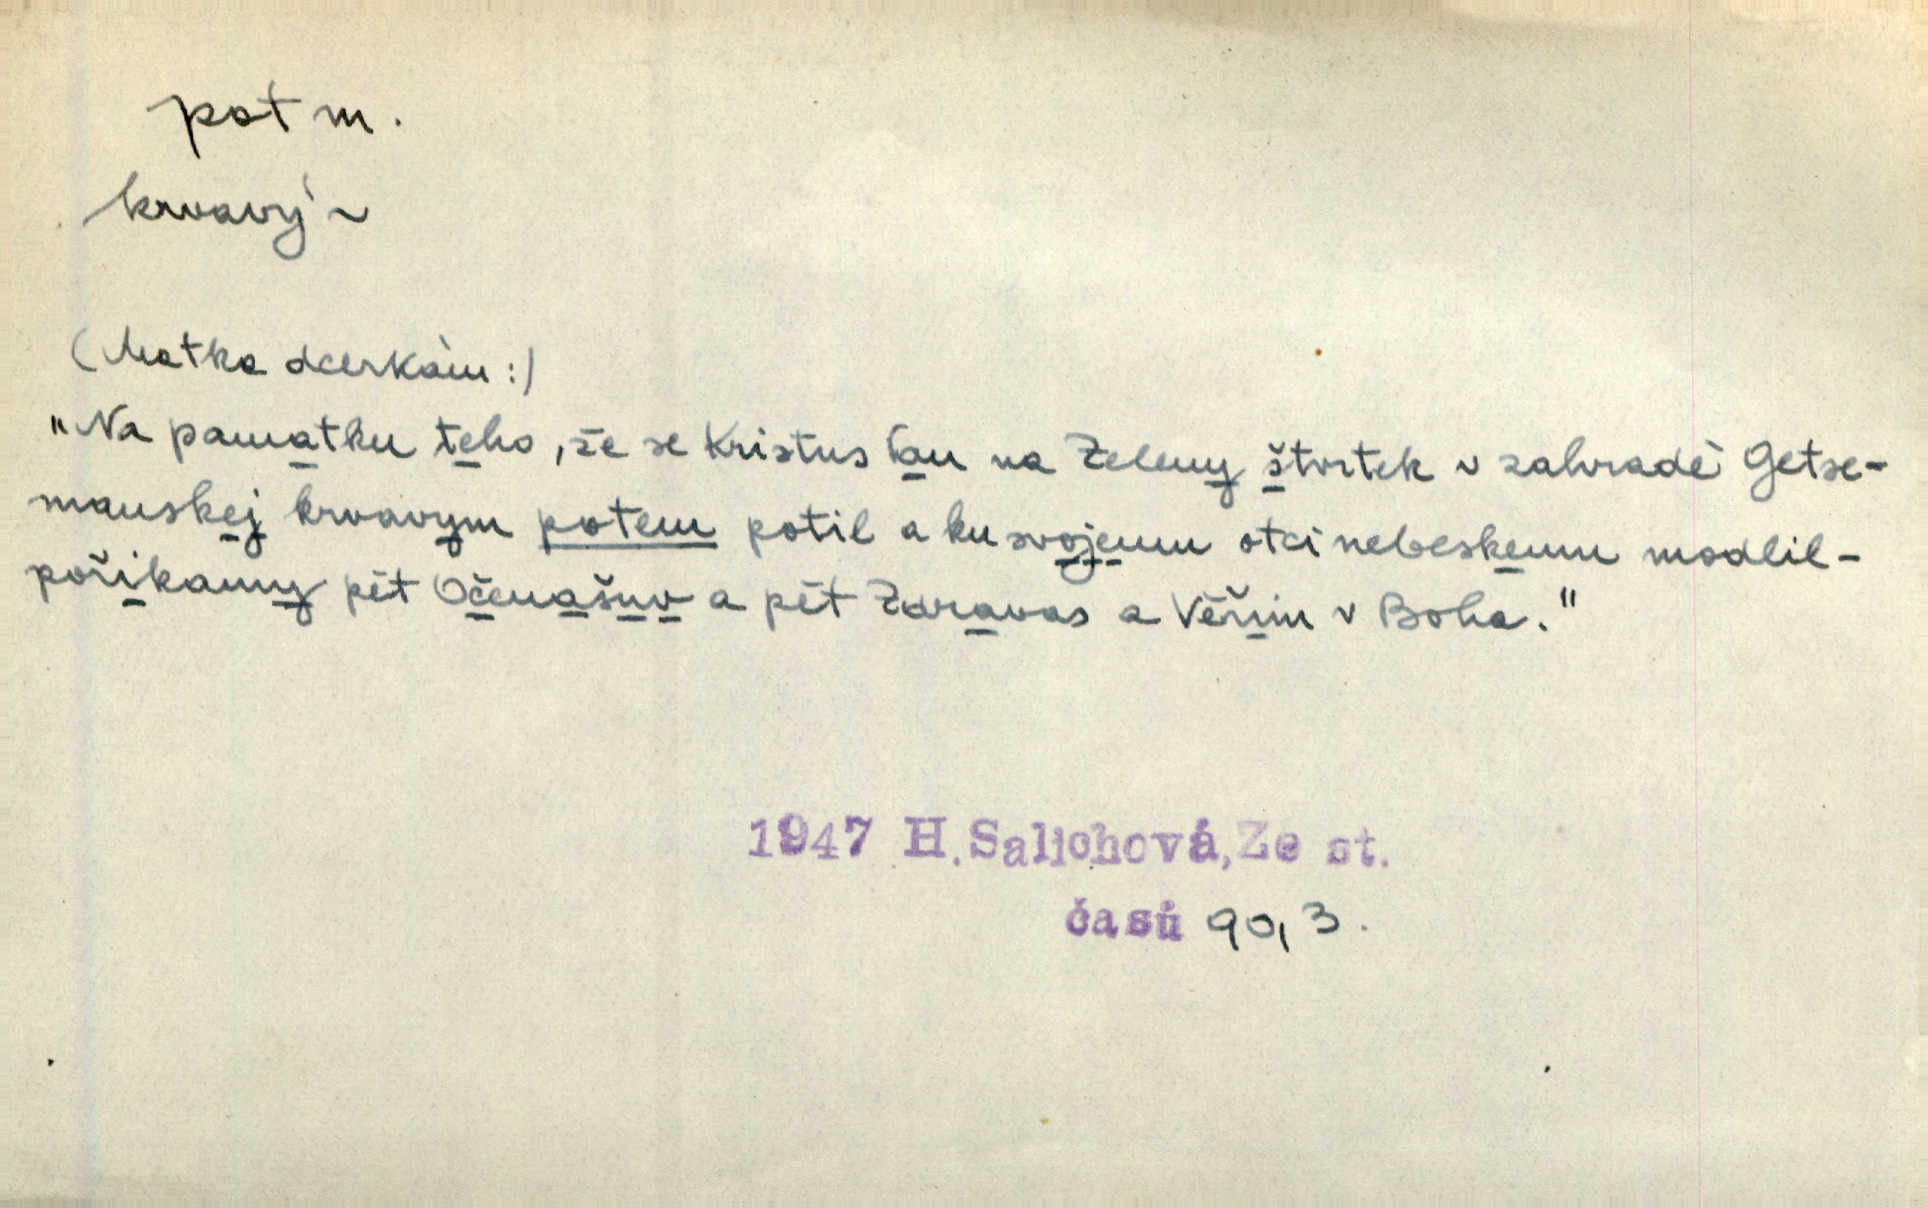 pot m.
krvavý ~
(Matka dcerkám:)
"Na pamatku teho, že se Kristus Pan na Zeleny štvrtek v zahradě Getse-
manskej krvavym potem potil a ku svojemu otci nebeskemu modlil -
pořikamy pět Očenašuv a pět Zdravas a Věřim v Boha."
1947 H.Salichová,Ze st.
časů 90,3.